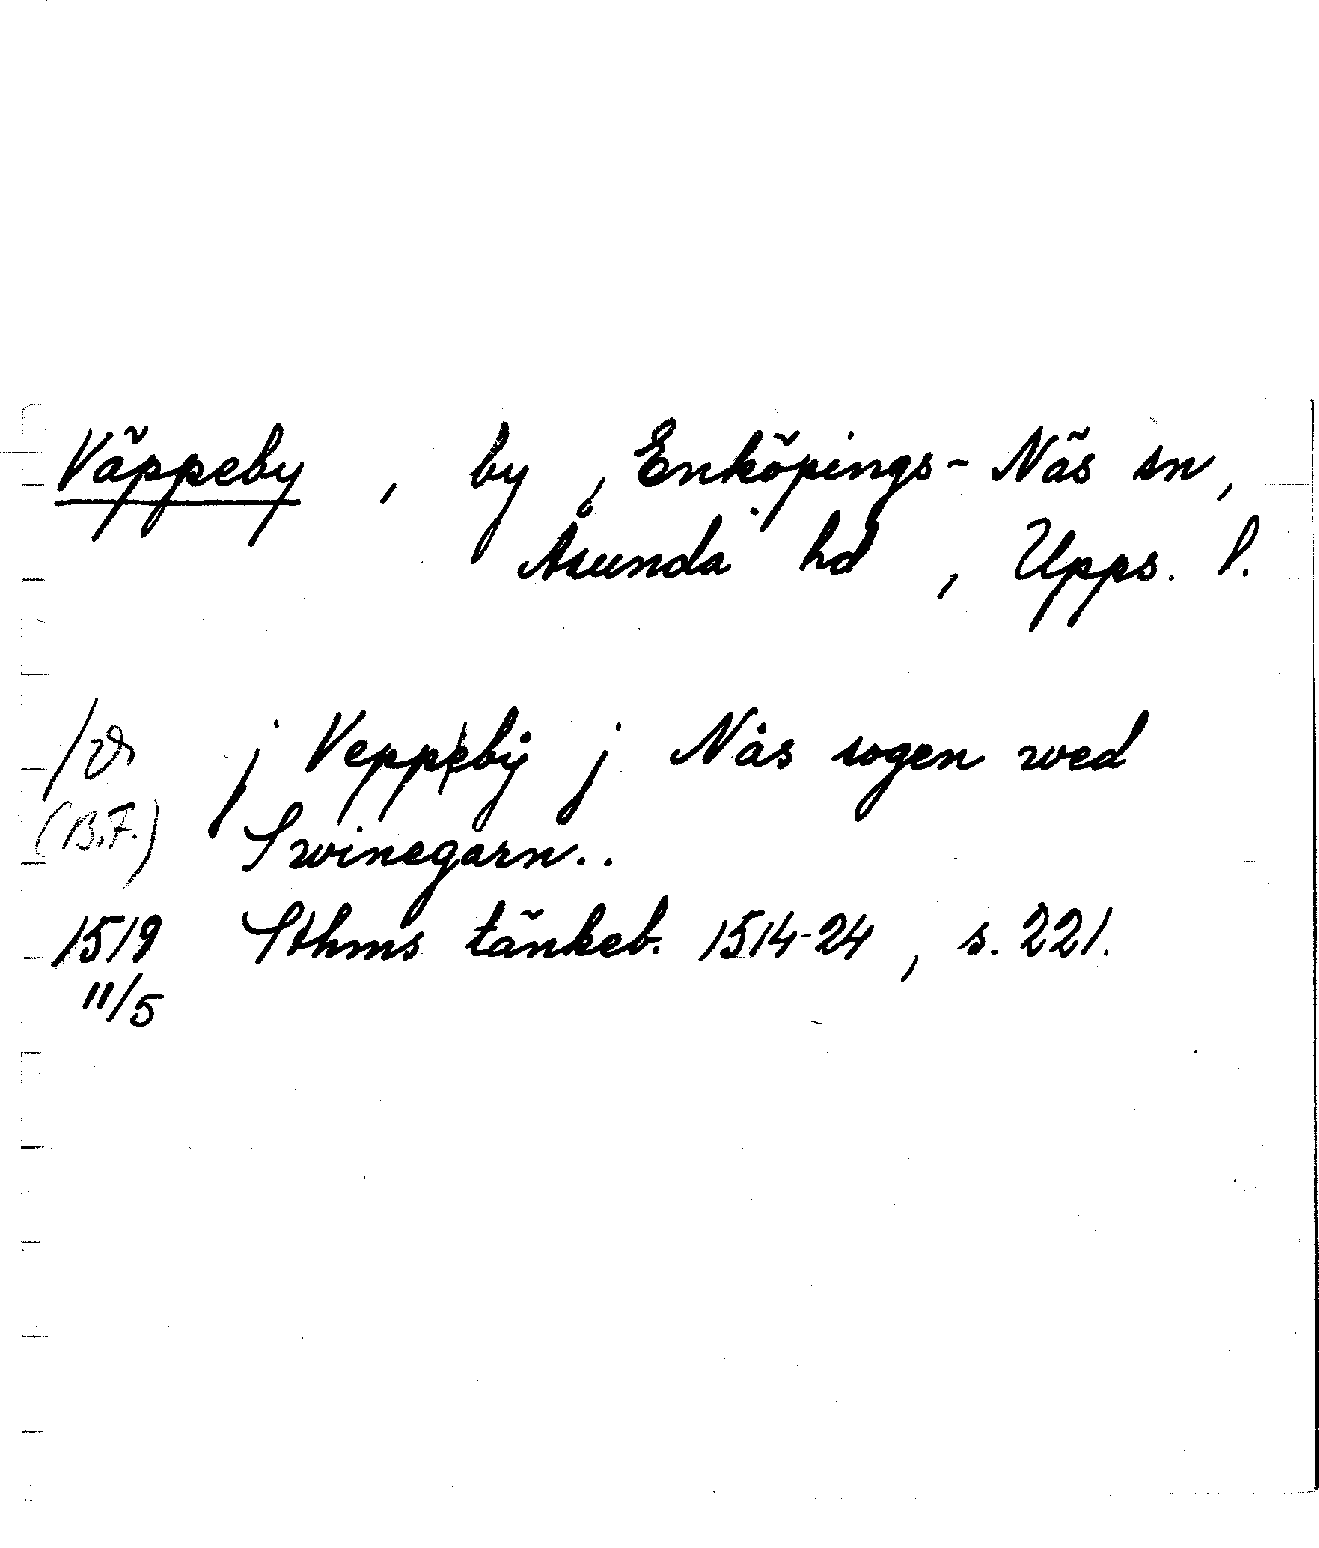 Väppeby, by, Enköpings-Näs sn,
Åsunda hd, Upps. l.
j Veppebÿ j Nås sogen wed
(B.F.) Swinegarn..
1519 Sthms tänkeb. 1514-24, s. 221.
11/5